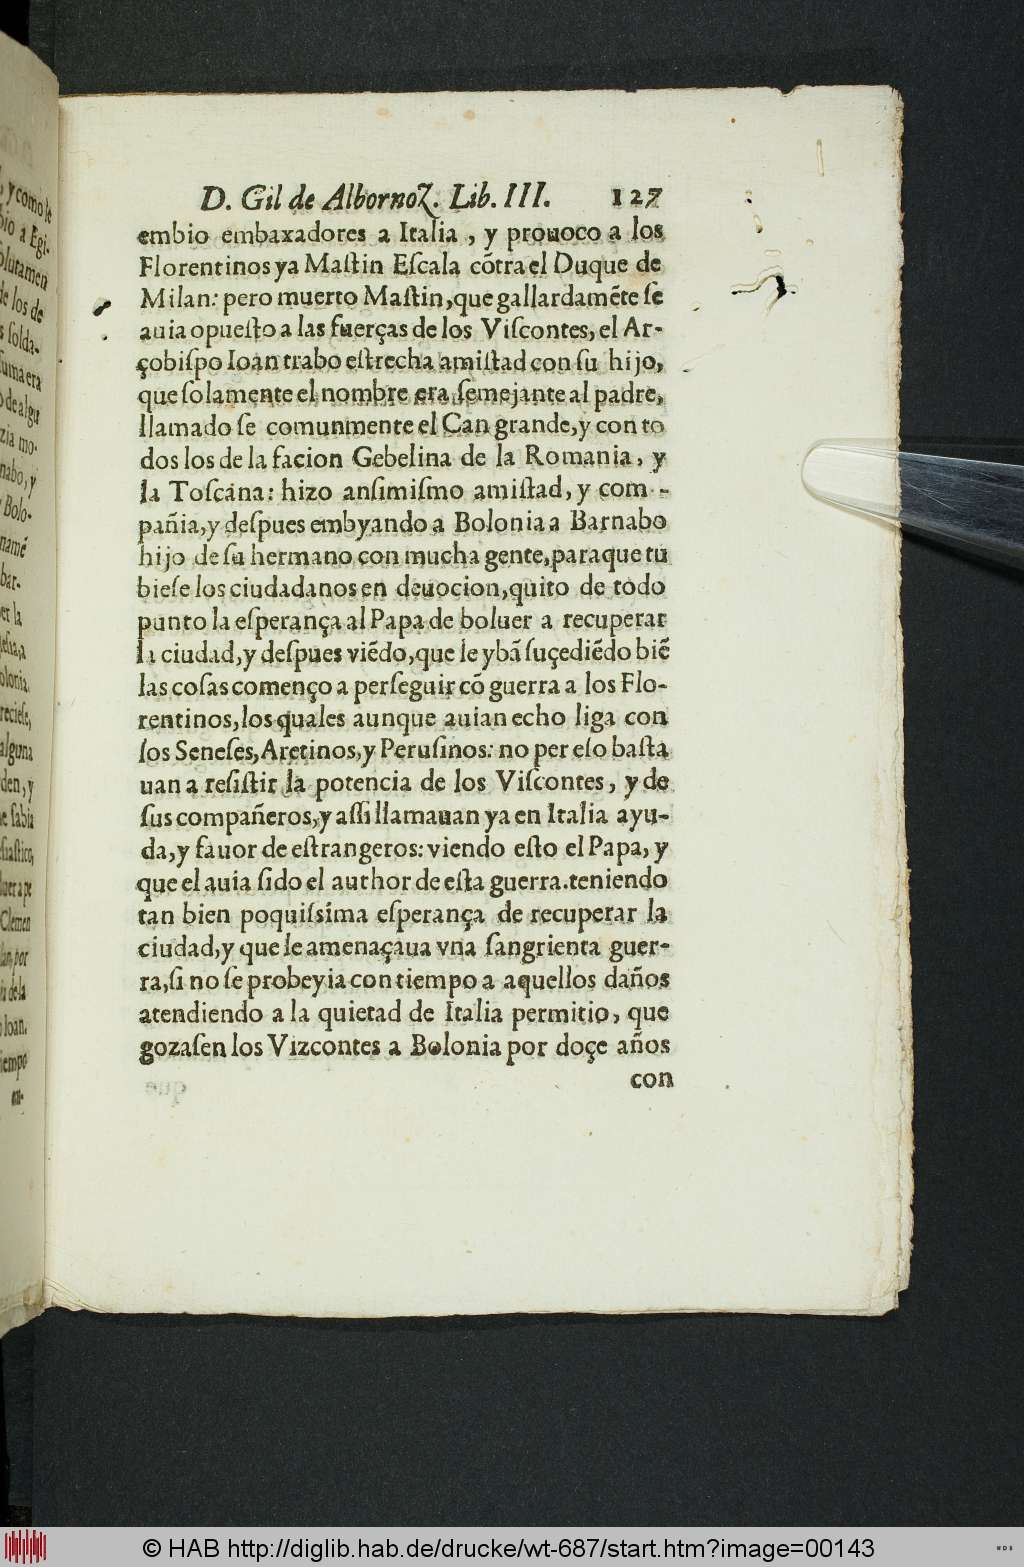 D. Gil de Albornoz. Lib. III. 127
embio embaxadores a Italia , y prouoco a los
Florentinos ya Maſtin Eſcala cõtra el Duque de
Milan: pero muerto Maſtin, que gallardamẽte ſe
auia opueſto a las fuerças de los Viſcontes, el Ar-
çobiſpo Ioan trabo eſtrecha amiſtad con ſu hijo,
que ſolamente el nombre era ſemejante al padre,
llamado ſe comunmente el Can grande, y con to
dos los de la facion Gebelina de la Romania, y
la Toſcana: hizo anſimiſmo amiſtad, y com-
pañia, y deſpues embyando a Bolonia a Barnabo
hijo de ſu hermano con mucha gente, paraque tu
bieſe los ciudadanos en deuocion, quito de todo
punto la eſperança al Papa de boluer a recuperar
la ciudad, y deſpues viẽdo, que le ybã ſuçediẽdo biẽ
las coſas començo a perſeguir cõ guerra a los Flo-
rentinos, los quales aunque auian echo liga con
los Seneſes, Aretinos, y Peruſinos: no per eſo baſta
uan a reſiſtir la potencia de los Viſcontes, y de
ſus compañeros, y aſſi llamauan ya en Italia ayu-
da, y fauor de eſtrangeros: viendo eſto el Papa, y
que el auia ſido el author de eſta guerra. teniendo
tan bien poquiſsima eſperança de recuperar la
ciudad, y que le amenaçaua vna ſangrienta guer-
ra, ſi no ſe probeyia con tiempo a aquellos daños
atendiendo a la quietad de Italia permitio, que
gozaſen los Vizcontes a Bolonia por doçe años
con
© HAB http://diglib.hab.de/drucke/wt-687/start.htm?image=00143